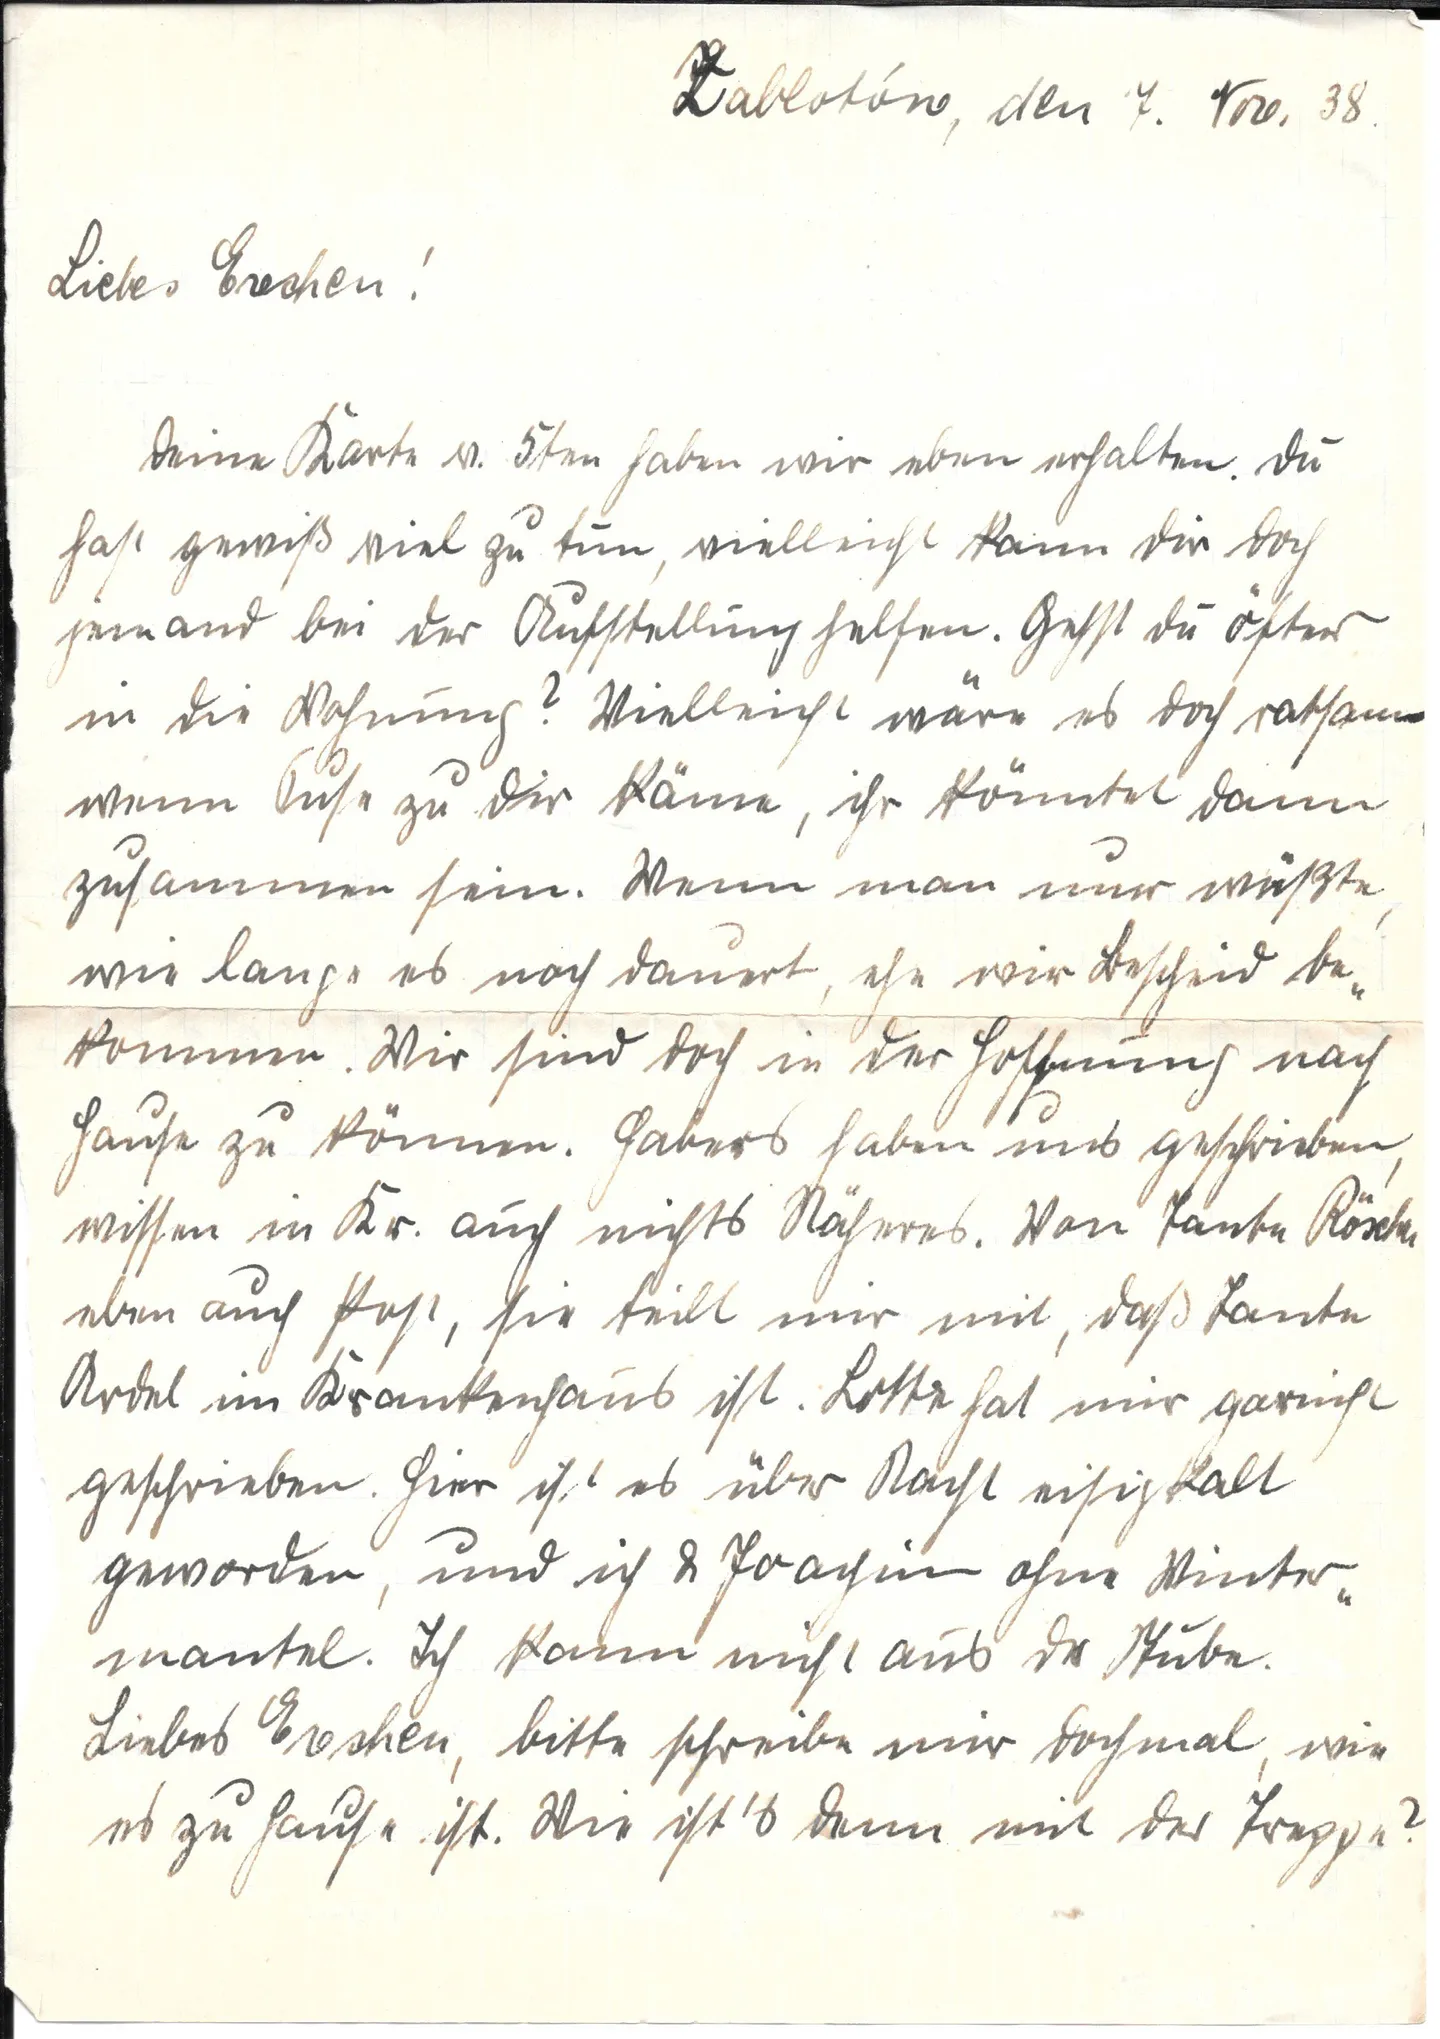 Zablotów, den 7. Nov. 38.
Liebes Evchen!
Deine Karte v. 5ten haben wir eben erhalten. Du
hast gewiß viel zu tun, vielleicht kann dir doch
jemand bei der Aufstellung helfen. Gehst du öfter
in die Wohnung? Vielleicht wäre es doch ratsam
wenn Suse zu dir käme, ihr könntet dann
zusammen sein. Wenn man nur wüßte,
wie lange es noch dauert, ehe wir Bescheid be„
kommen. Wir sind doch in der Hoffnung nach
Hause zu können. Habers haben uns geschrieben,
wissen in Kr. auch nichts Näheres. Von Tante Röschen
eben auch Post, sie teilt mir mit, daß Tante
Ardel im Krankenhaus ist. Lotte hat mir garnicht
geschrieben. Hier ist es über Nacht eisigkalt
geworden, und ich & Joachim ohne Winter„
mantel. Ich kann nicht aus der Stube.
Liebes Evchen, bitte schreibe mir dochmal, wie
es zu Hause ist. Wie ist's denn mit der Treppe?